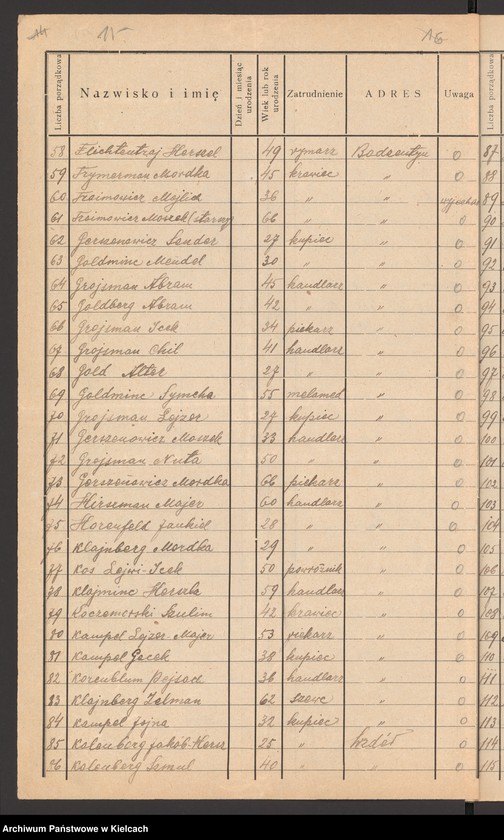 15 16
Liczba porządkowa Nazwisko i imię Dzień i miesiąc urodzenia Wiek lub rok urodzenia Zatrudnienie ADRES Uwaga Liczba porządkowa
58 Flichtentzaj Herszel 49 rymarz Bodzentyn 0 87
59 Frymerman Mordka 45 krawiec " 0 88
60 Frajmowicz Majlich 36 " " 89
61 Frajmowicz Moszek (starszy) 66 " " 0 90
62 Gerszonowicz Sender 27 kupiec " 0 91
63 Goldminc Mendel 30 " " 0 92
64 Grojsman Abram 45 handlarz " 0 93
65 Goldberg Abram 42 " " 0 94
66 Grojsman Icek 34 piekarz " 0 95
67 Grojsman Chil 41 handlarz " 0 96
68 Gold Alter 27 " " 0 97
69 Goldminc Symcha 55 melamed " 0 98
70 Grojsman Lejzor 27 kupiec " 0 99
71 Gerszonowicz Moszek 33 handlarz " 0 100
72 Grojsman Nuta 50 " " 0 101
73 Gerszonowicz Mordka 66 piekarz " 0 102
74 Hirszman Majer 60 handlarz " 0 103
75 Horenfeld Jankiel 28 " " 0 104
76 Klajnberg Mordka 29 " " 0 105
77 Kos Lejwi-Icek 50 powroźnik " 0 106
78 Klajminc Herszla 59 handlarz " 0 107
79 Koczomorski Szulim 42 krawiec " 0 108
80 Kampel Lejzor-Majer 53 piekarz " 0 109
81 Kampel Gecek 38 kupiec " 0 110
82 Korenblum Pejsach 36 handlarz " 0 111
83 Klajnberg Zelman 62 szewc " 0 112
84 Kampel Jojna 32 kupiec " 0 113
85 Kolenberg Jakób-Hersz 25 " Wzdół 0 114
86 Kolenberg Szmul 40 " " 0 115
Archiwum Państwowe w Kielcach